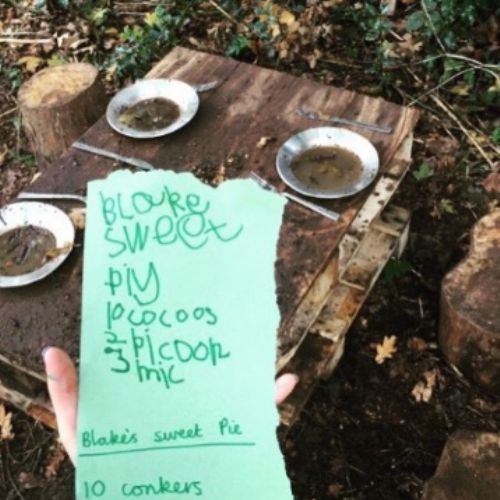 Blake
sweet
piy
10 cocoos
2 picoon
3 mic
Blake's sweet Pie
10 conkers